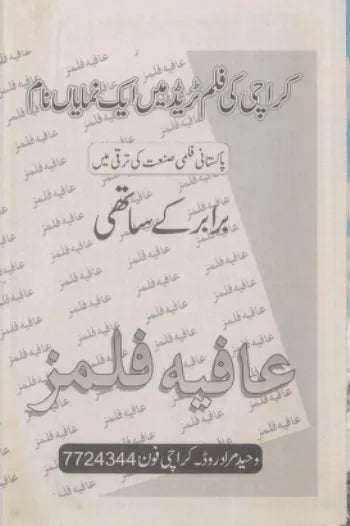 کراچی کی فلم ٹریڈ میں ایک نمایاں نام
پاکستانی فلمی صنعت کی ترقی میں
برابر کے ساتھی
عافیہ فلمز
وحید مراد روڈ۔ کراچی فون 7724344